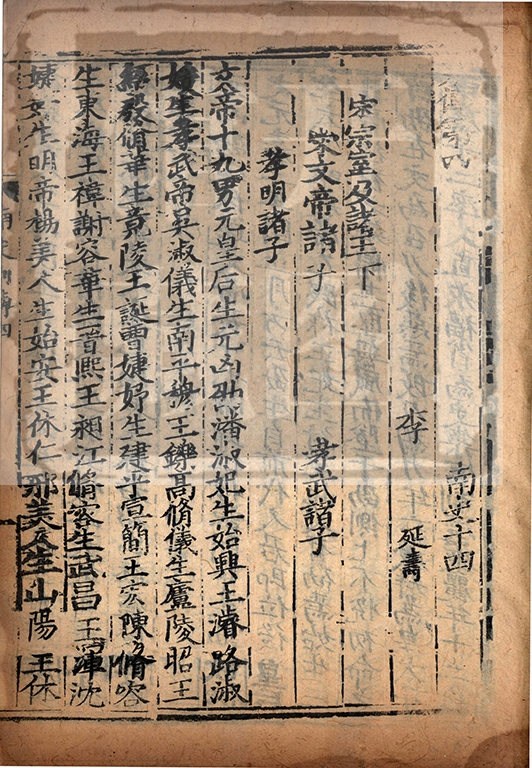 列傳第四 南史十四
李 延壽
宋宗室及諸王下
宋文帝諸子 孝武諸子
孝明諸子
文帝十九男元皇后生元凶劭潘淑妃生始興王濬路淑
媛生孝武帝吳淑儀生南平穆王鑠高脩儀生廬陵昭王
紹殷脩華生竟陵王誕曹婕妤生建平宣簡王宏陳脩容
生東海王禕謝容華生晉熙王昶江脩容生武昌王渾沈
婕妤生明帝楊美人生始安王休仁邢美人生山陽王休